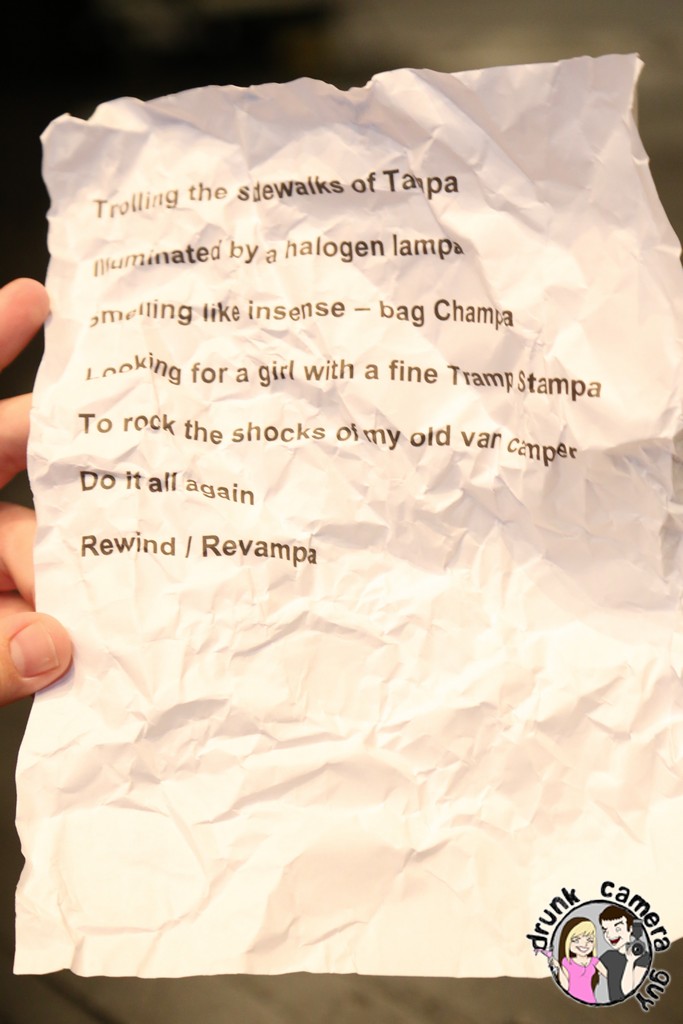 Trolling the sidewalks of Tampa
Illuminated by a halogen lampa
Smelling like insense – bag Champa
Looking for a girl with a fine Tramp Stampa
To rock the shocks of my old van camper
Do it all again
Rewind / Revampa
drunk camera guy